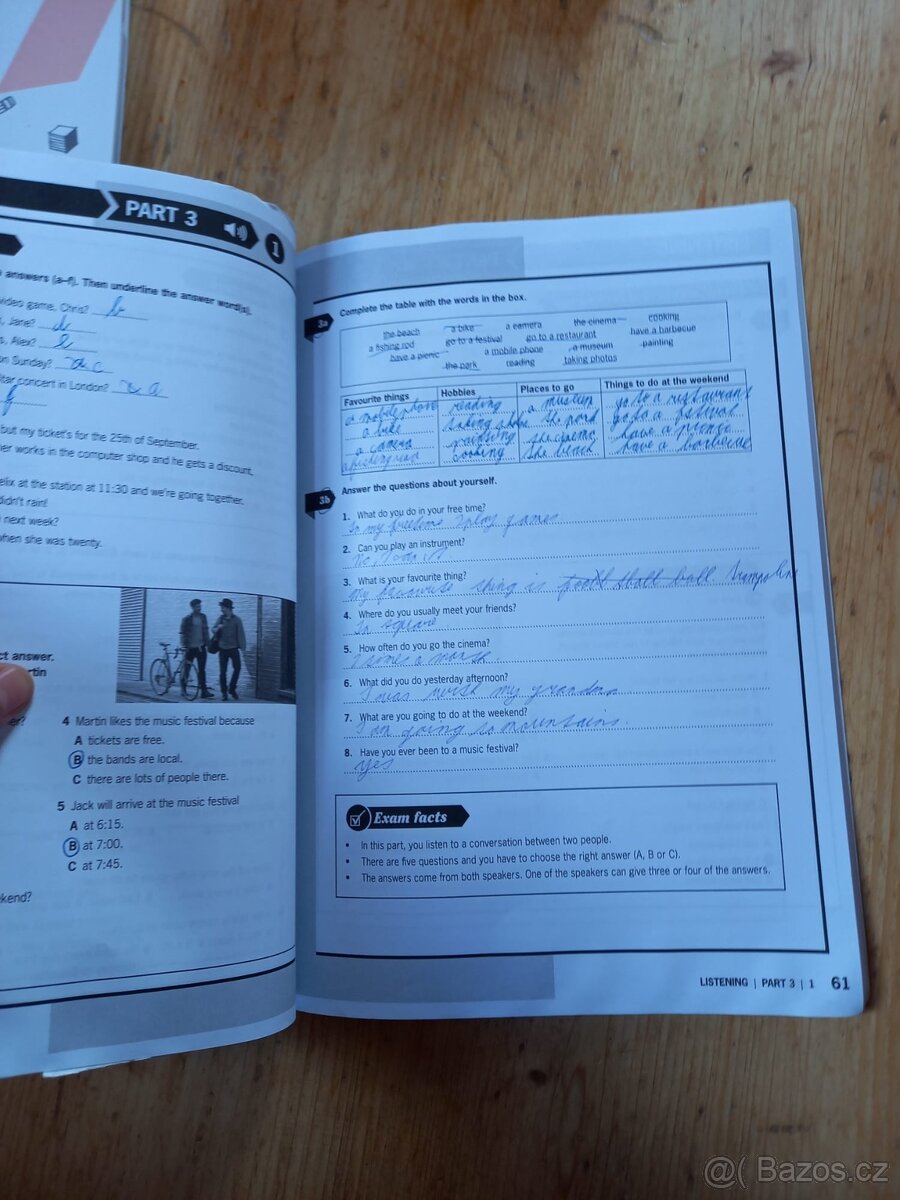 PART 3
1
answers (a–f). Then underline the answer word(s).
video game, Chris? b
, Jane? d
s, Alex? e
on Sunday? c
tar concert in London? a
f
but my ticket's for the 25th of September.
her works in the computer shop and he gets a discount,
elix at the station at 11:30 and we're going together.
didn't rain!
next week?
when she was twenty.
ct answer.
rtin
er?
4 Martin likes the music festival because
A tickets are free.
B the bands are local.
C there are lots of people there.
5 Jack will arrive at the music festival
A at 6:15.
B at 7:00.
C at 7:45.
kend?
3a Complete the table with the words in the box.
the beach a bike a camera the cinema cooking
a fishing rod go to a festival go to a restaurant have a barbecue
have a picnic a mobile phone a museum painting
the park reading taking photos
Favourite things Hobbies Places to go Things to do at the weekend
a mobile phone reading a museum go to a restaurant
a bike taking the park go to a festival
a camera painting the cinema have a picnic
cooking the beach have a barbecue
3b Answer the questions about yourself.
1. What do you do in your free time?
In my freetime I play games
2. Can you play an instrument?
No, I
3. What is your favourite thing?
My favourite thing is ball trampoline
4. Where do you usually meet your friends?
In square
5. How often do you go the cinema?
6. What did you do yesterday afternoon?
I was with my grandma
7. What are you going to do at the weekend?
I am going to mountains.
8. Have you ever been to a music festival?
yes
Exam facts
• In this part, you listen to a conversation between two people.
• There are five questions and you have to choose the right answer (A, B or C).
• The answers come from both speakers. One of the speakers can give three or four of the answers.
LISTENING | PART 3 | 1 61
@( Bazos.cz